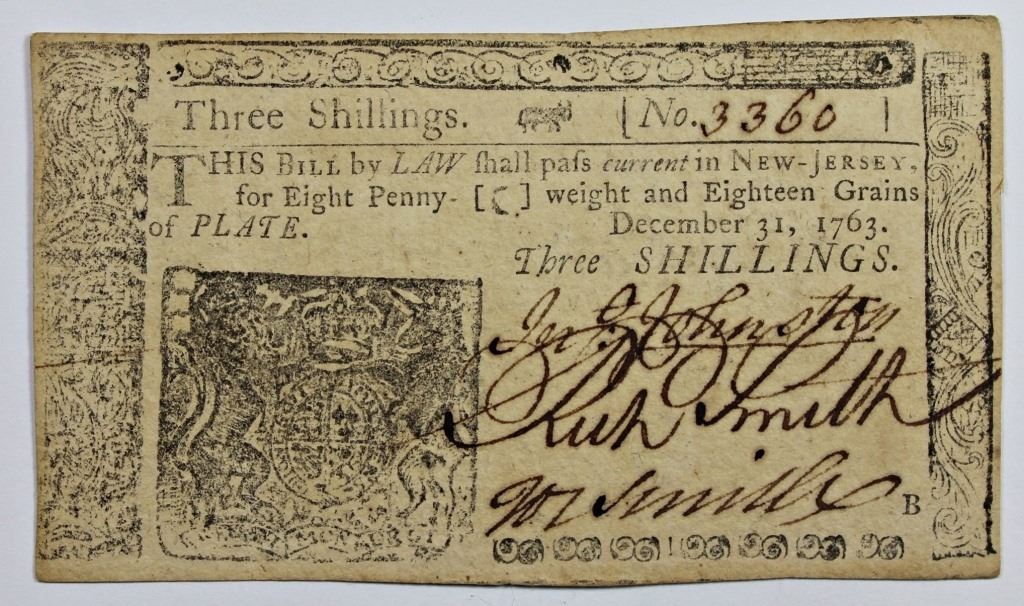 Three Shillings. [No. 3360 ]
THIS BILL by LAW ſhall paſs current in NEW-JERSEY,
for Eight Penny- [ ] weight and Eighteen Grains
of PLATE. December 31, 1763.
Three SHILLINGS.
Johnston
Richd Smith
Jos Smith
B